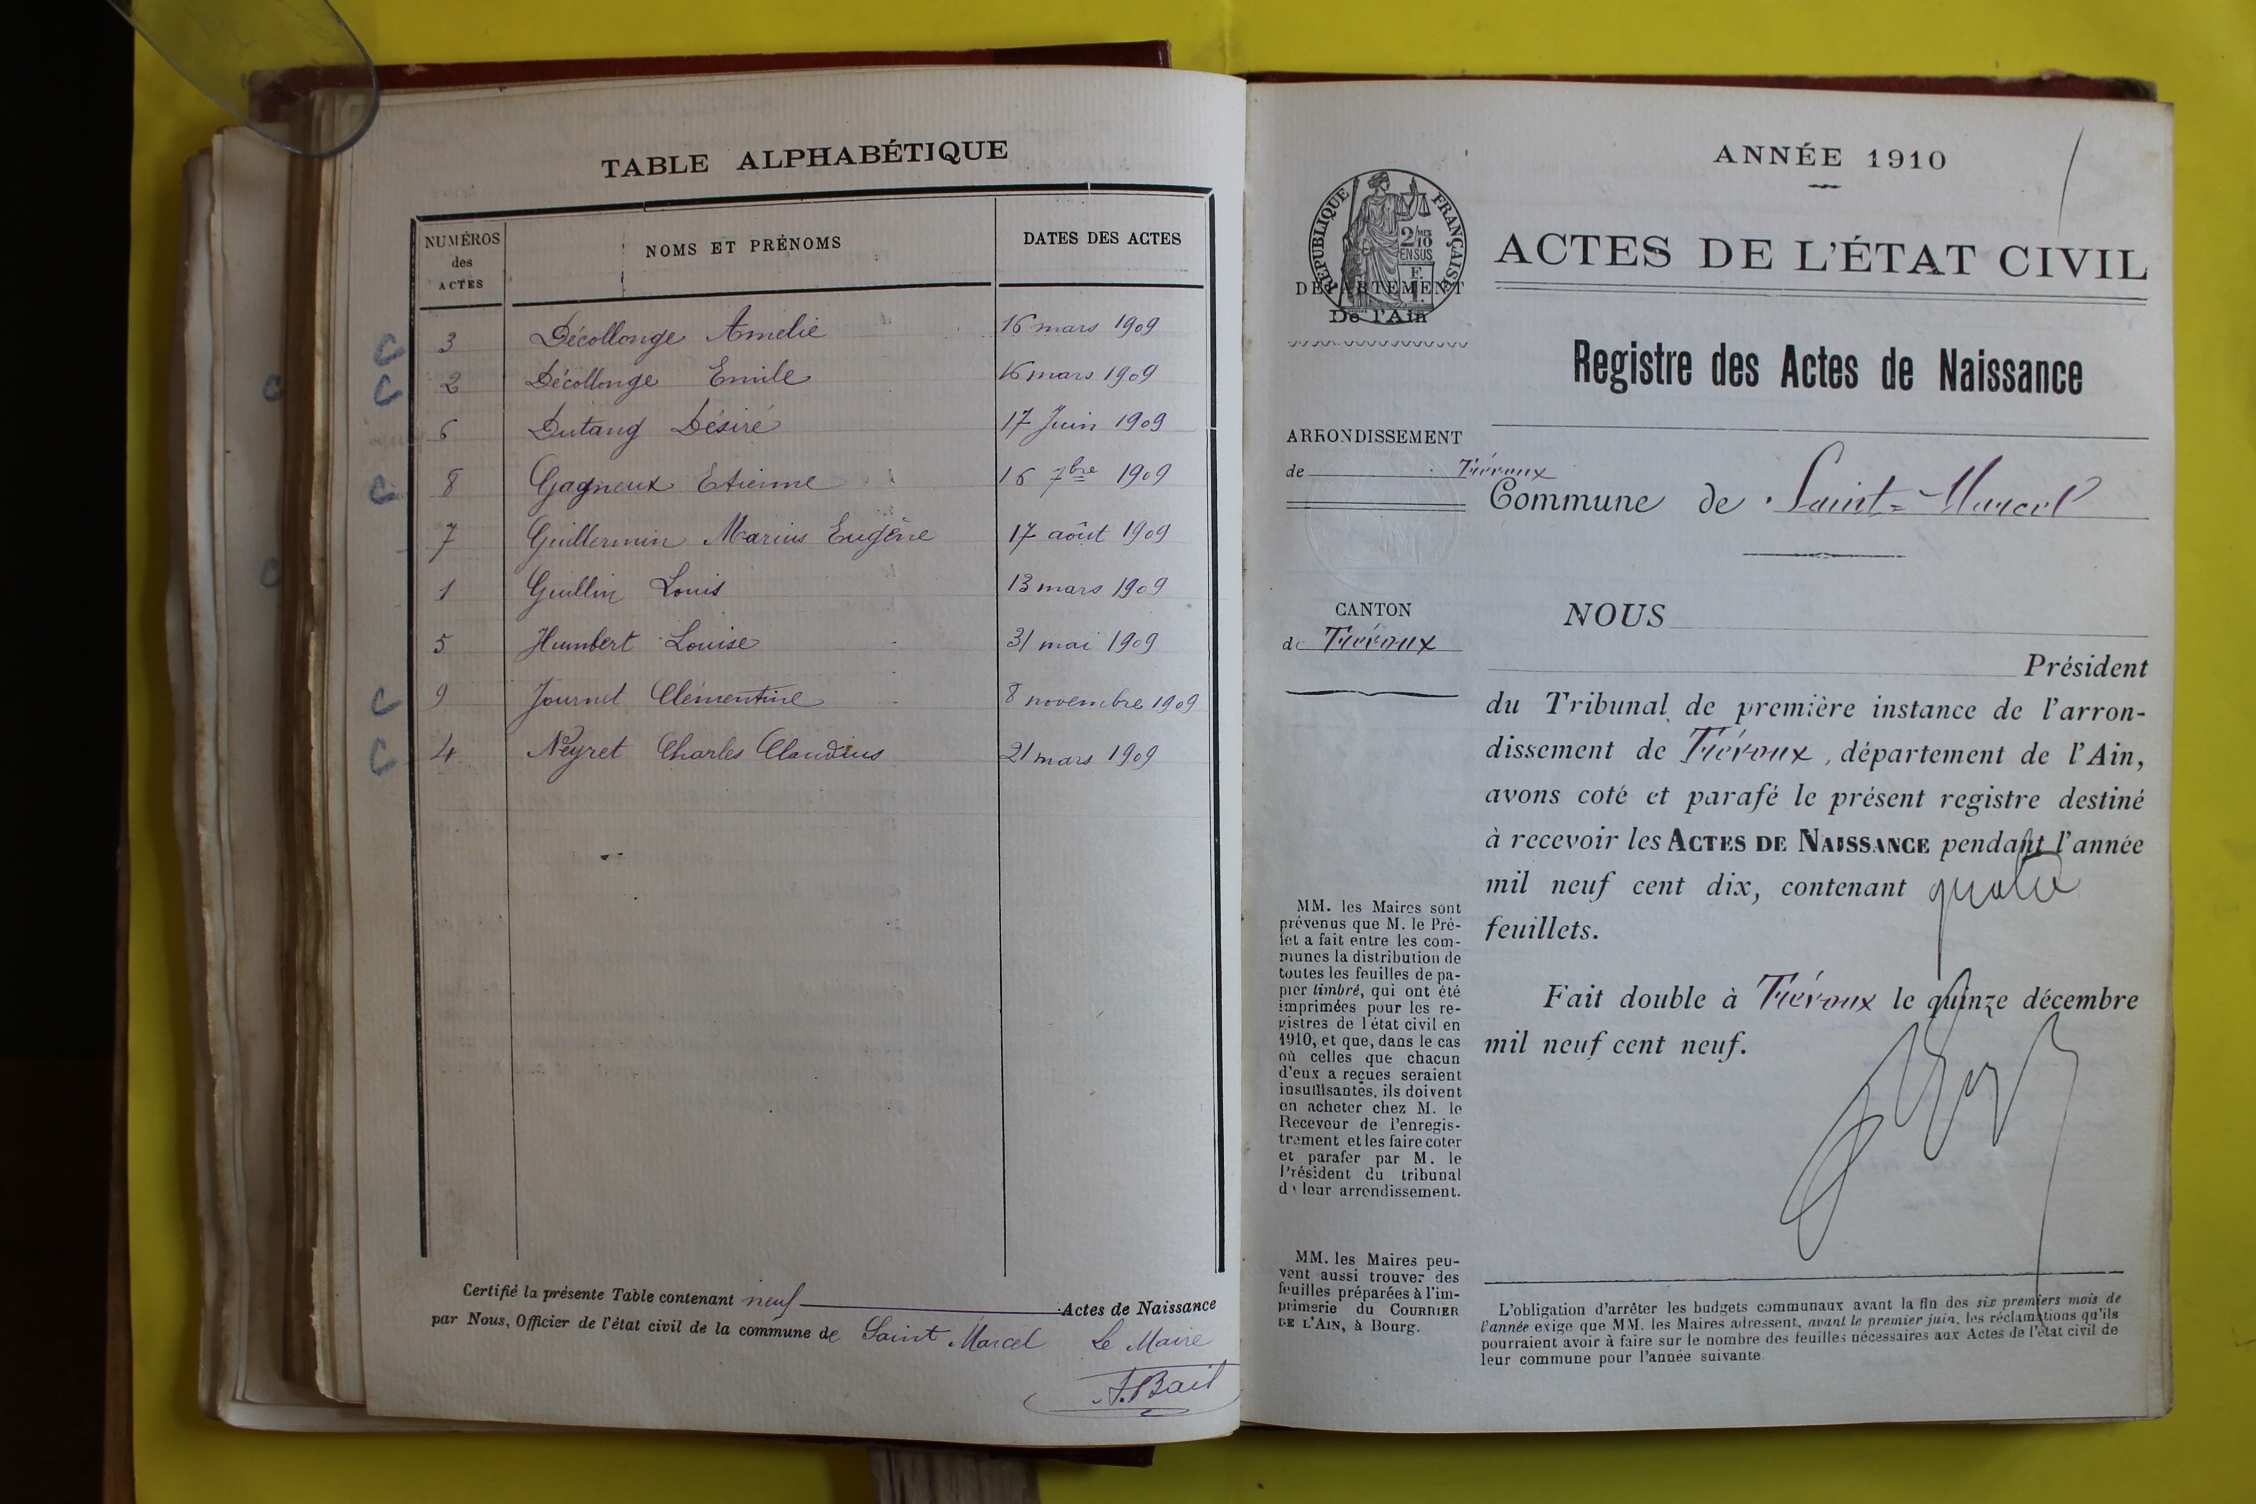 TABLE ALPHABÉTIQUE
NUMÉROS des ACTES NOMS ET PRÉNOMS DATES DES ACTES
C 3 Décollonge Amélie 16 mars 1909
C 2 Décollonge Emile 16 mars 1909
6 Dutang Désiré 17 Juin 1909
C 8 Gagneux Etienne 16 7bre 1909
7 Guillermin Marius Eugène 17 août 1909
1 Guillin Louis 13 mars 1909
5 Humbert Louise 31 mai 1909
C 9 Journet Clémentine 8 novembre 1909
C 4 Neyret Charles Claudius 21 mars 1909
Certifié la présente Table contenant neuf Actes de Naissance
par Nous, Officier de l'état civil de la commune de Saint Marcel Le Maire
A. Bait
ANNÉE 1910
RÉPUBLIQUE FRANÇAISE
2/10 MES
EN SUS
DÉPARTEMENT
De l'Ain
ACTES DE L'ÉTAT CIVIL
Registre des Actes de Naissance
ARRONDISSEMENT
de Trévoux
Commune de Saint-Marcel
CANTON
de Trévoux
NOUS
Président
du Tribunal de première instance de l'arron-
dissement de Trévoux, département de l'Ain,
avons coté et parafé le présent registre destiné
à recevoir les ACTES DE NAISSANCE pendant l'année
mil neuf cent dix, contenant quatre
feuillets.
Fait double à Trévoux le quinze décembre
mil neuf cent neuf.
MM. les Maires sont
prévenus que M. le Pré-
fet a fait entre les com-
munes la distribution de
toutes les feuilles de pa-
pier timbré, qui ont été
imprimées pour les re-
gistres de l'état civil en
1910, et que, dans le cas
où celles que chacun
d'eux a reçues seraient
insuffisantes, ils doivent
en acheter chez M. le
Receveur de l'enregis-
trement et les faire coter
et parafer par M. le
Président du tribunal
de leur arrondissement.
MM. les Maires peu-
vent aussi trouver des
feuilles préparées à l'im-
primerie du COURRIER
DE L'AIN, à Bourg.
L'obligation d'arrêter les budgets communaux avant la fin des six premiers mois de
l'année exige que MM. les Maires adressent, avant le premier juin, les réclamations qu'ils
pourraient avoir à faire sur le nombre des feuilles nécessaires aux Actes de l'état civil de
leur commune pour l'année suivante.